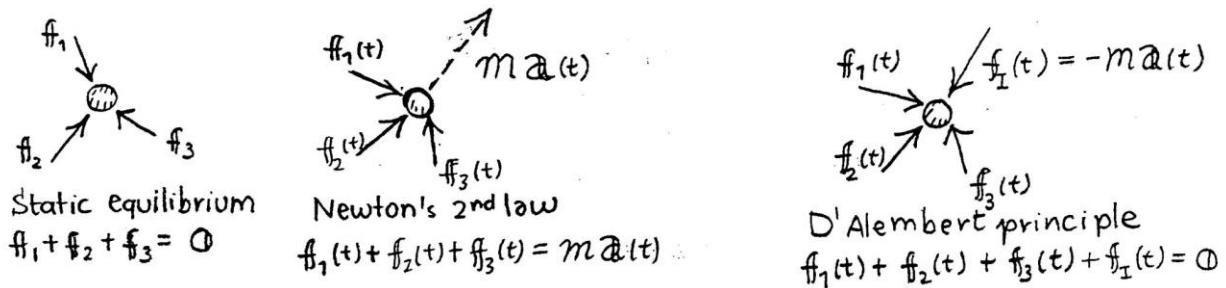 f₁
f₂
f₃
Static equilibrium
f₁ + f₂ + f₃ = 0
f₁(t)
ma(t)
f₂(t)
f₃(t)
Newton's 2nd law
f₁(t) + f₂(t) + f₃(t) = ma(t)
f₁(t)
f_I(t) = -ma(t)
f₂(t)
f₃(t)
D'Alembert principle
f₁(t) + f₂(t) + f₃(t) + f_I(t) = 0